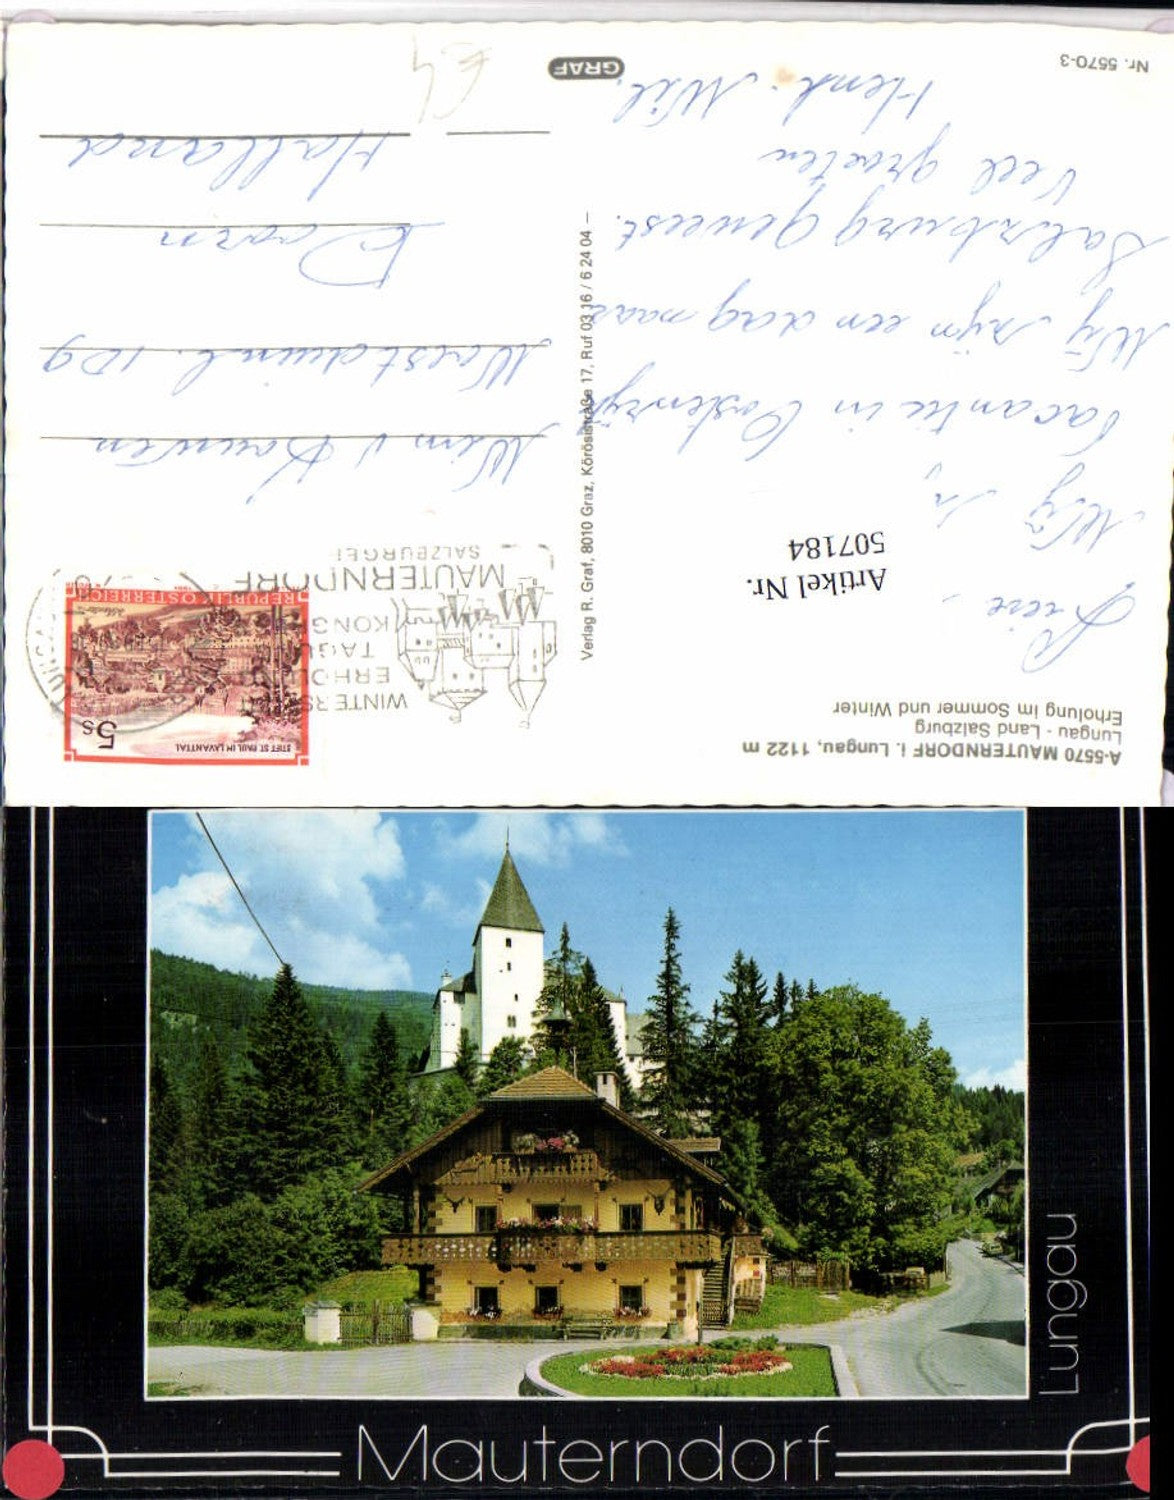 A-5570 MAUTERNDORF i. Lungau, 1122 m
Lungau - Land Salzburg
Erholung im Sommer und Winter
Artikel Nr.
507184
Wij
vacantie in Oostenrijk
Wij zijn een dag naar
Salzburg geweest.
Veel groeten
Henk. Wil.
Nr. 5570-3
Verlag R. Graf, 8010 Graz, Körösistraße 17, Ruf 03 16 / 6 24 04 –
GRAF
STIFT ST. PAUL IM LAVANTTAL
5s
REPUBLIK ÖSTERREICH
WINTERS
ERHOLU
TAGU
KONG
MAUTERNDORF
SALZBURGER
Wim v
109
Doorn
Holland
Lungau
Mauterndorf